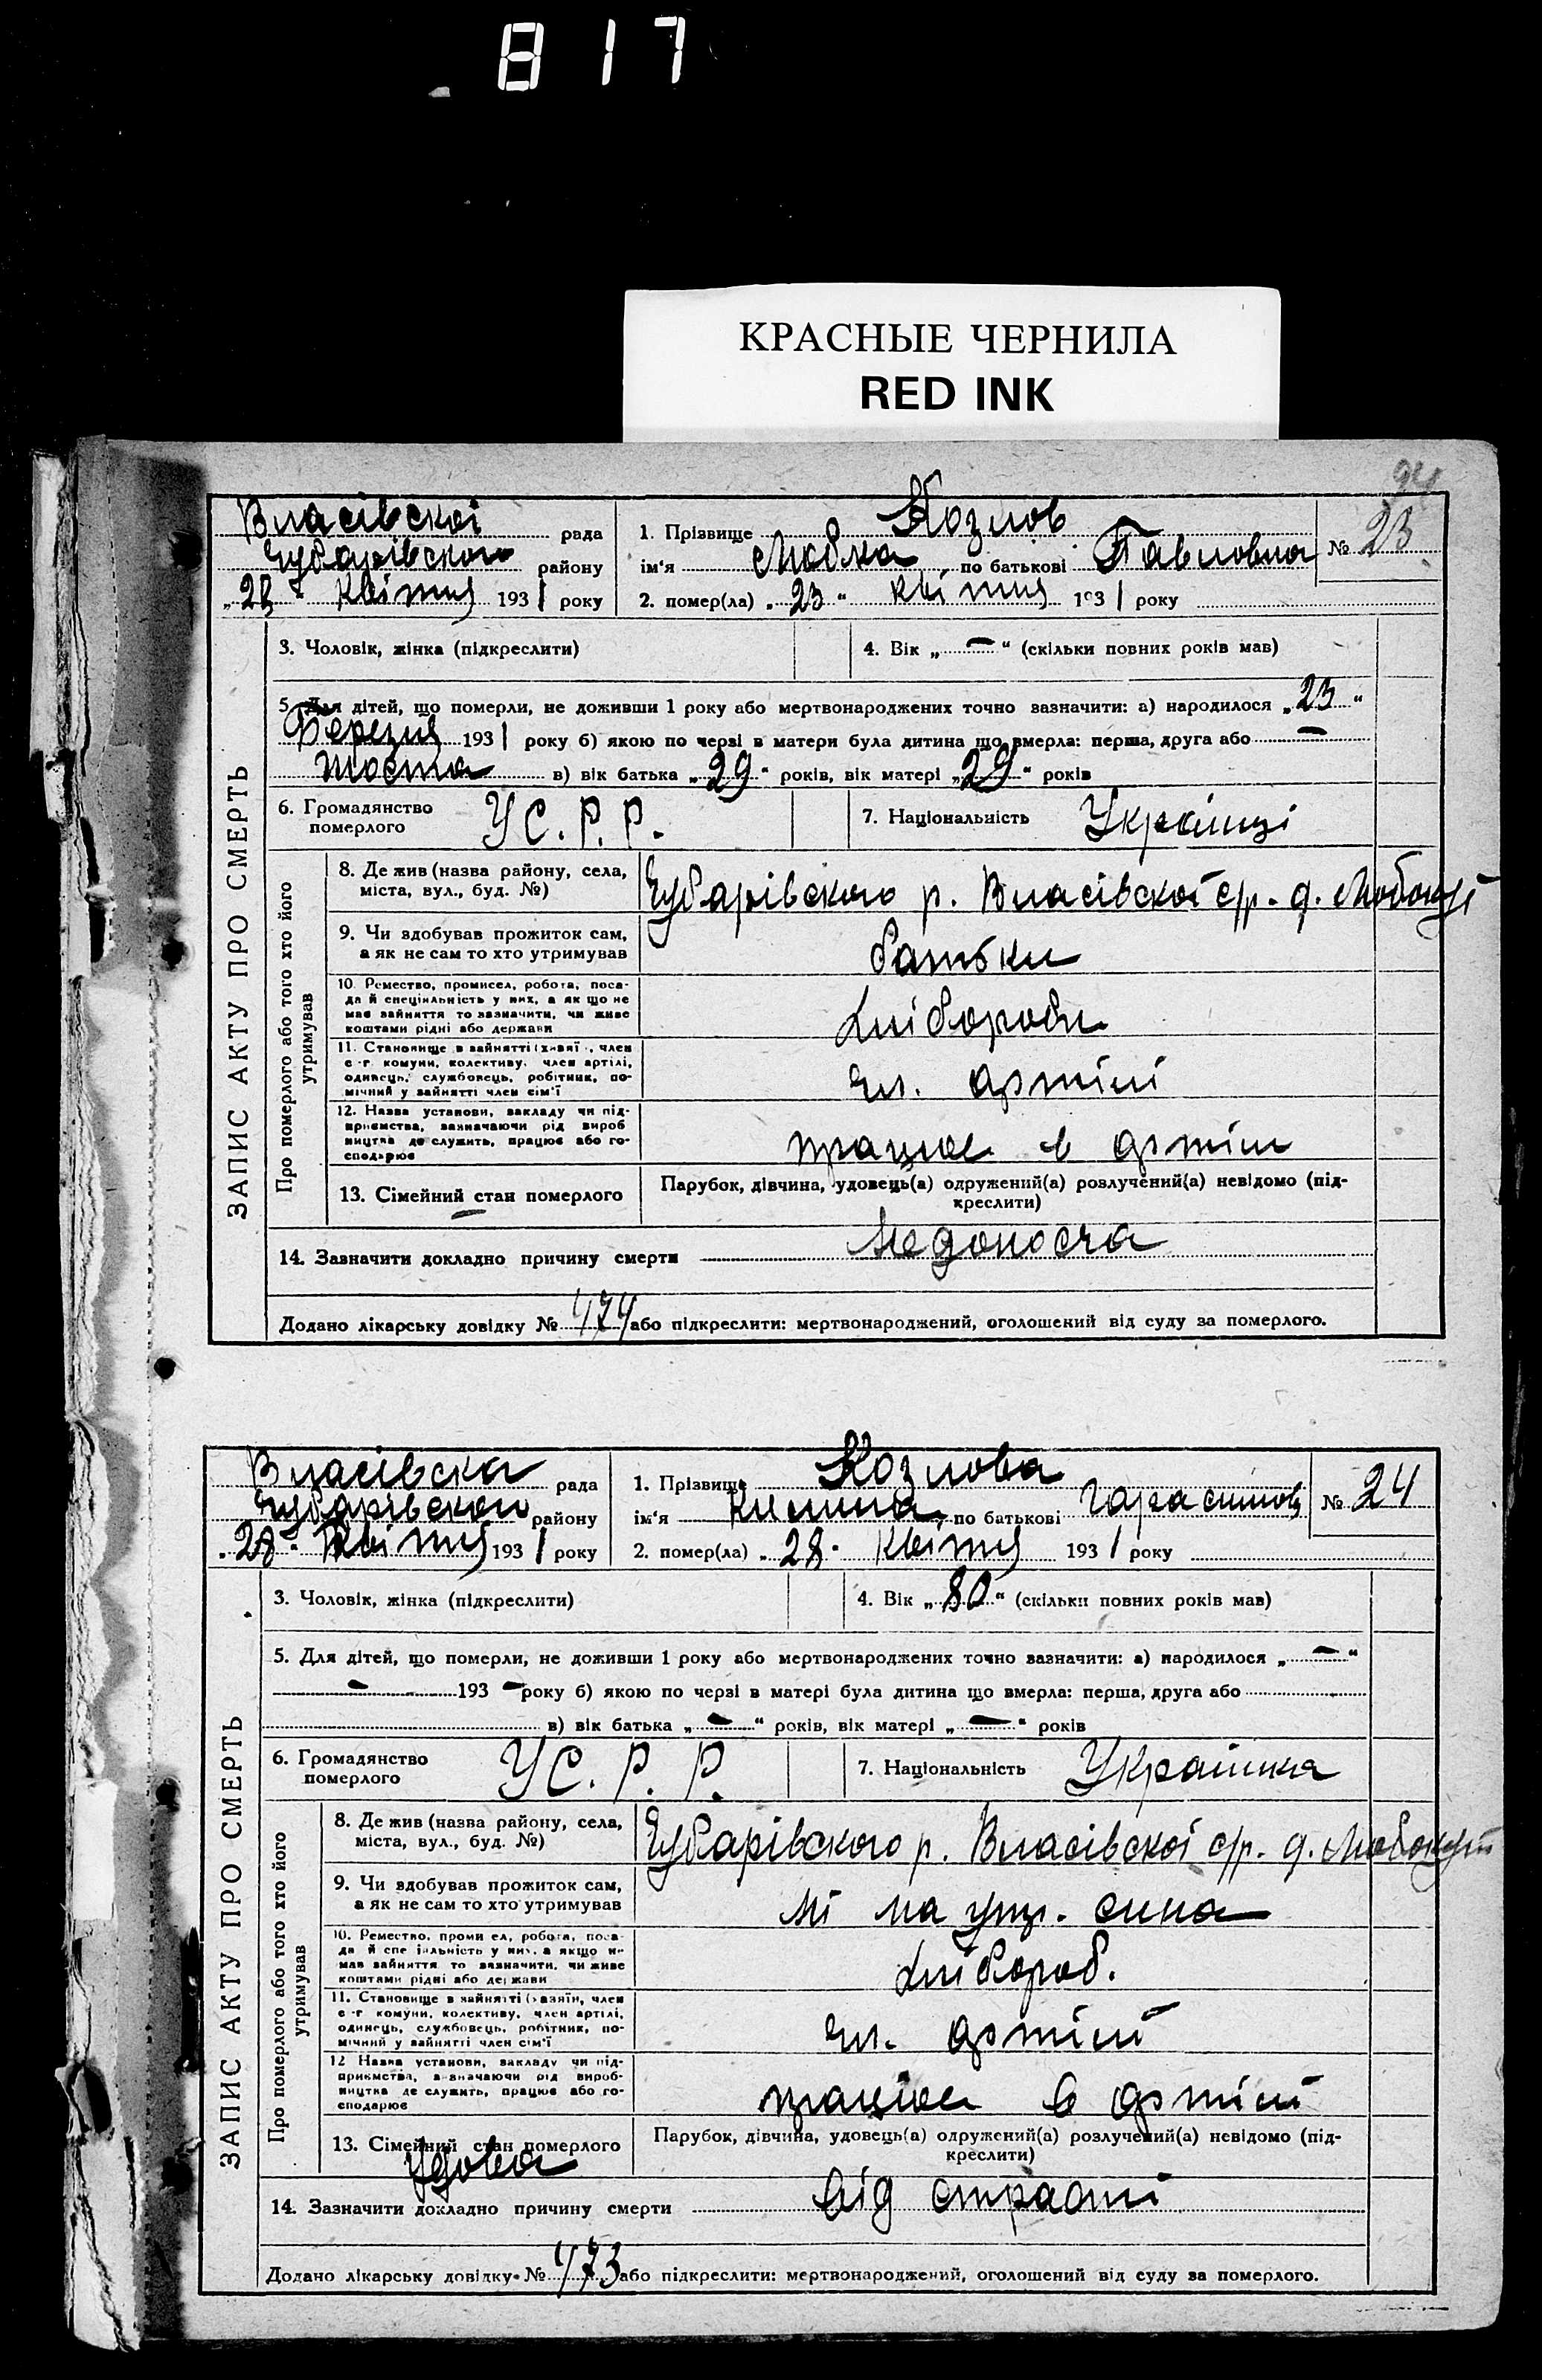 817
КРАСНЫЕ ЧЕРНИЛА
RED INK
94
Власівскої рада
Чубарівского району
„ 23 " Квітня 1931 року
1. Прізвище Козлов
ім'я Любка по батькові Павловна
№ 23
2. помер(ла) „ 23 " квітня 1931 року
3. Чоловік, жінка (підкреслити)
4. Вік „ — " (скільки повних років мав)
5. Для дітей, що померли, не доживши 1 року або мертвонароджених точно зазначити: а) народилося „ 23 "
Березня 1931 року б) якою по черзі в матери була дитина що вмерла: перша, друга або —
шоста в) вік батька „ 29 " років, вік матері „ 29 " років
6. Громадянство померлого УС.Р.Р.
7. Національність Українці
ЗАПИС АКТУ ПРО СМЕРТЬ
Про померлого або того хто його утримував
8. Де жив (назва району, села, міста, вул., буд. №) Чубарівского р. Власівскої с/р. д.
9. Чи здобував прожиток сам, а як не сам то хто утримував батьки
10. Ремество, промисел, робота, посада й спеціяльність у них, а як що не мав зайняття то зазначити, чи живе коштами рідні або держави Хлібороби
11. Становище в зайнятті (хазяїн, член с-г комуни, колективу, член артілі, одинець, службовець, робітник, помічний у зайнятті член сім'ї чл. артілі
12. Назва установи, закладу чи підприємства, зазначаючи рід виробництва де служить, працює або господарює працює в артіли
13. Сімейний стан померлого — Парубок, дівчина, удовець(а) одружений(а) розлучений(а) невідомо (підкреслити)
14. Зазначити докладно причину смерти
Додано лікарську довідку № 474 або підкреслити: мертвонароджений, оголошений від суду за померлого.
Власівска рада
Чубарівского району
„ 28 " Квітня 1931 року
1. Прізвище Козлова
ім'я Килина по батькові
№ 24
2. помер(ла) „ 28 " Квітня 1931 року
3. Чоловік, жінка (підкреслити)
4. Вік „ 80 " (скільки повних років мав)
5. Для дітей, що померли, не доживши 1 року або мертвонароджених точно зазначити: а) народилося „ — "
— 193 — року б) якою по черзі в матері була дитина що вмерла: перша, друга або
в) вік батька „ — " років, вік матері „ — " років
6. Громадянство померлого УС.Р.Р.
7. Національність Українка
ЗАПИС АКТУ ПРО СМЕРТЬ
Про померлого або того хто його утримував
8. Де жив (назва району, села, міста, вул., буд. №) Чубарівского р. Власівскої с/р. д.
9. Чи здобував прожиток сам, а як не сам то хто утримував ні на утр. сина
10. Ремество, промисел, робота, посада й спеціяльність у них, а якщо не мав зайняття то зазначити, чи живе коштами рідні або держави Хлібороб.
11. Становище в зайнятті (хазяїн, член с-г комуни, колективу, член артілі, одинець, службовець, робітник, помічний у зайнятті член сім'ї чл. артілі
12 Назва установи, закладу чи підприємства, зазначаючи рід виробництва де служить, працює або господарює працює в артілі
13. Сімейний стан померлого Удова Парубок, дівчина, удовець(а) одружений(а) розлучений(а) невідомо (підкреслити)
14. Зазначити докладно причину смерти від старости
Додано лікарську довідку № 473 або підкреслити: мертвонароджений, оголошений від суду за померлого.